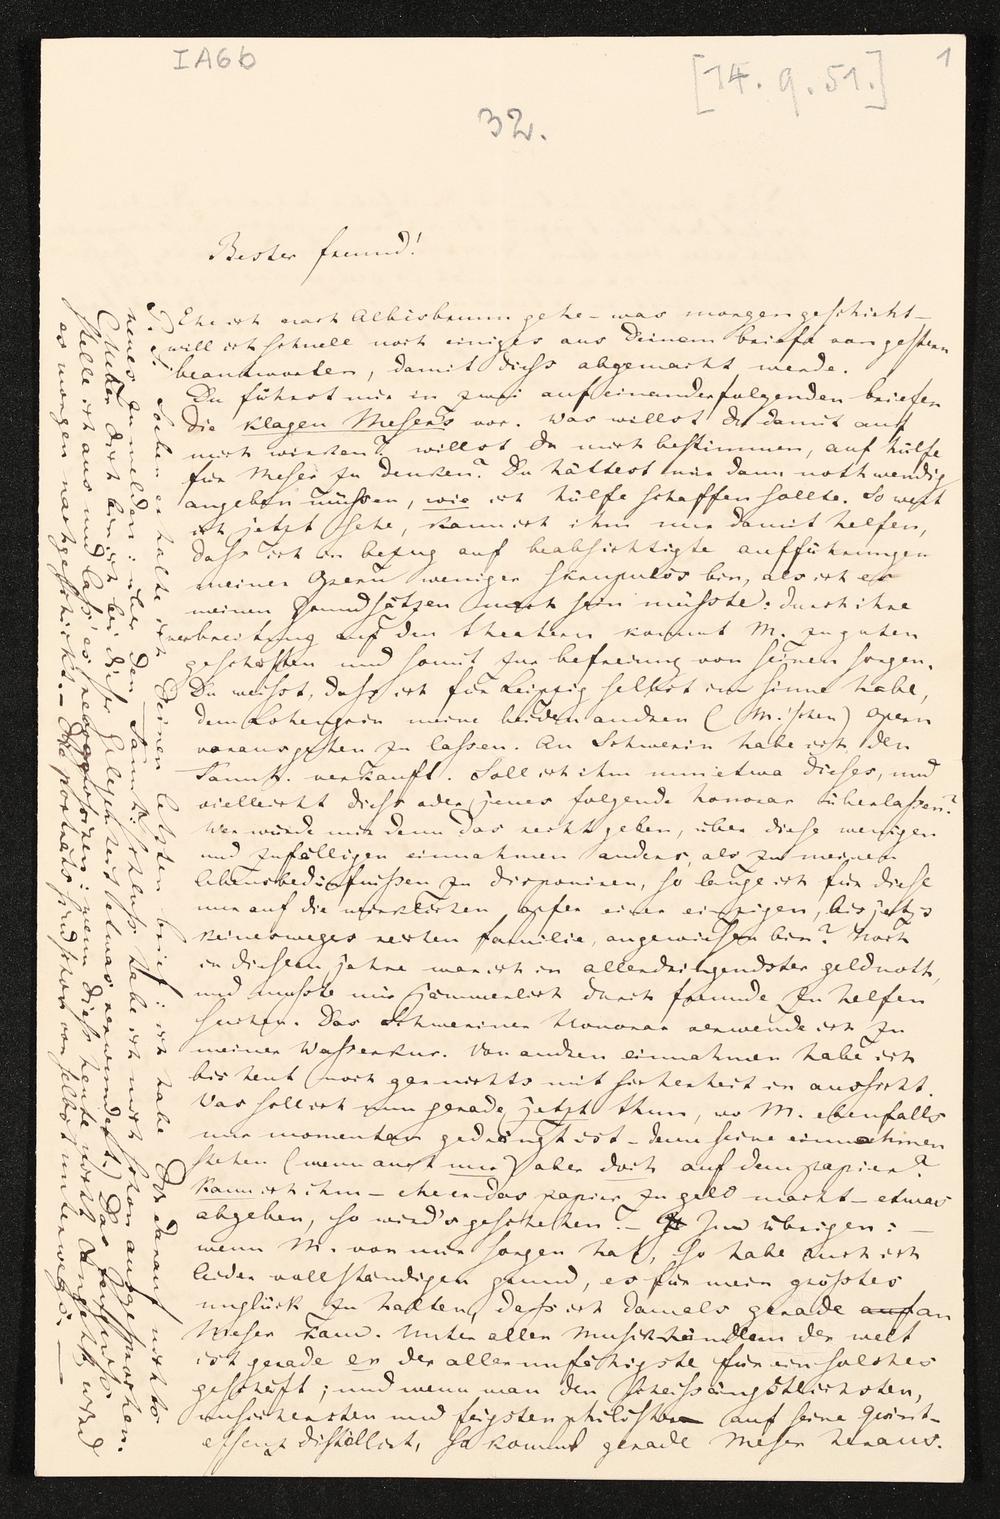 IA6b
[14. 9. 51.]
1
32.
Bester freund!
Ehe ich nach Albisbrunn gehe – was morgen geschieht –
will ich schnell noch einiges aus Deinem briefe von gestern
beantworten, damit diess abgemacht werde.
Du führst mir in zwei aufeinanderfolgenden briefen
die klagen Meser's vor. Was willst du damit auf
mich wirken? willst du mich bestimmen, auf hülfe
für Meser zu denken? Du hättest mir dann nothwendig
angeben müssen, wie ich hülfe schaffen sollte. So weit
ich jetzt sehe, kann ich ihm nur damit helfen,
dass ich in bezug auf beabsichtigte aufführungen
meiner Opern weniger skrupulös bin, als ich es
meinen Grundsätzen nach sein müsste: durch ihre
verbreitung auf den theatern kommt M. zu guten
geschäften und somit zur befreiung von seinen sorgen.
Du weisst, dass ich für Leipzig selbst im sinne habe,
dem Lohengrin meine beiden andren (M.'schen) Opern
vorausgehen zu lassen. An Schwerin habe ich den
Tannh. verkauft. Soll ich ihm nun etwa dieses, und
vielleicht diess oder jenes folgende honorar überlassen?
Wer würde mir denn das recht geben, über diese wenigen
und zufälligen einnahmen anders, als zu meinen
lebensbedürfnissen zu disponiren, so lange ich für diese
nur auf die wirklichen opfer einer einzigen, bis jetzt
keinesweges reichen familie, angewiesen bin? Noch
in diesem jahre war ich in allerdringendster geldnoth,
und musste mir jämmerlich durch freunde zu helfen
suchen. Das Schweriner Honorar verwende ich zu
meiner Wasserkur. Von andren einnahmen habe ich
bis heut noch gar nichts mit sicherheit in aussicht.
Was soll ich nun gerade jetzt thun, wo M. ebenfalls
nur momentan gedrängt ist – denn seine einnahmen
stehen (wenn auch nur) aber doch auf dem papier?
Kann ich ihm – ehe er das papier zu geld macht – etwas
abgeben, so wird's geschehen. – Im übrigen: –
wenn M. von mir sorgen hat, so habe auch ich
leider vollständigen grund, es für mein grösstes
unglück zu halten, dass ich damals gerade auf an
Meser kam. Unter allen Musikhändlern der welt
ist gerade er der allerunfähigste für ein solches
geschäft; und wenn man den scheissängstlichsten,
unsichersten und feigsten philister auf seine Geist-
essenz distillirt, so kommt gerade Meser heraus.
P. S. Soeben erhalte ich Deinen letzten brief: ich habe Dir darauf nichts
neues zu melden: über den Tannh. schluss habe ich mich schon ausgesprochen.
(Uhlig dort bin ich bei dieser gelegenheit etwas verwundert.) Das
stelle ich aus und lass' es: wenn diess heute nicht anlangt, wird
es morgen nachgeschickt. – Die portraits sind schon von selbst unterwegs. –